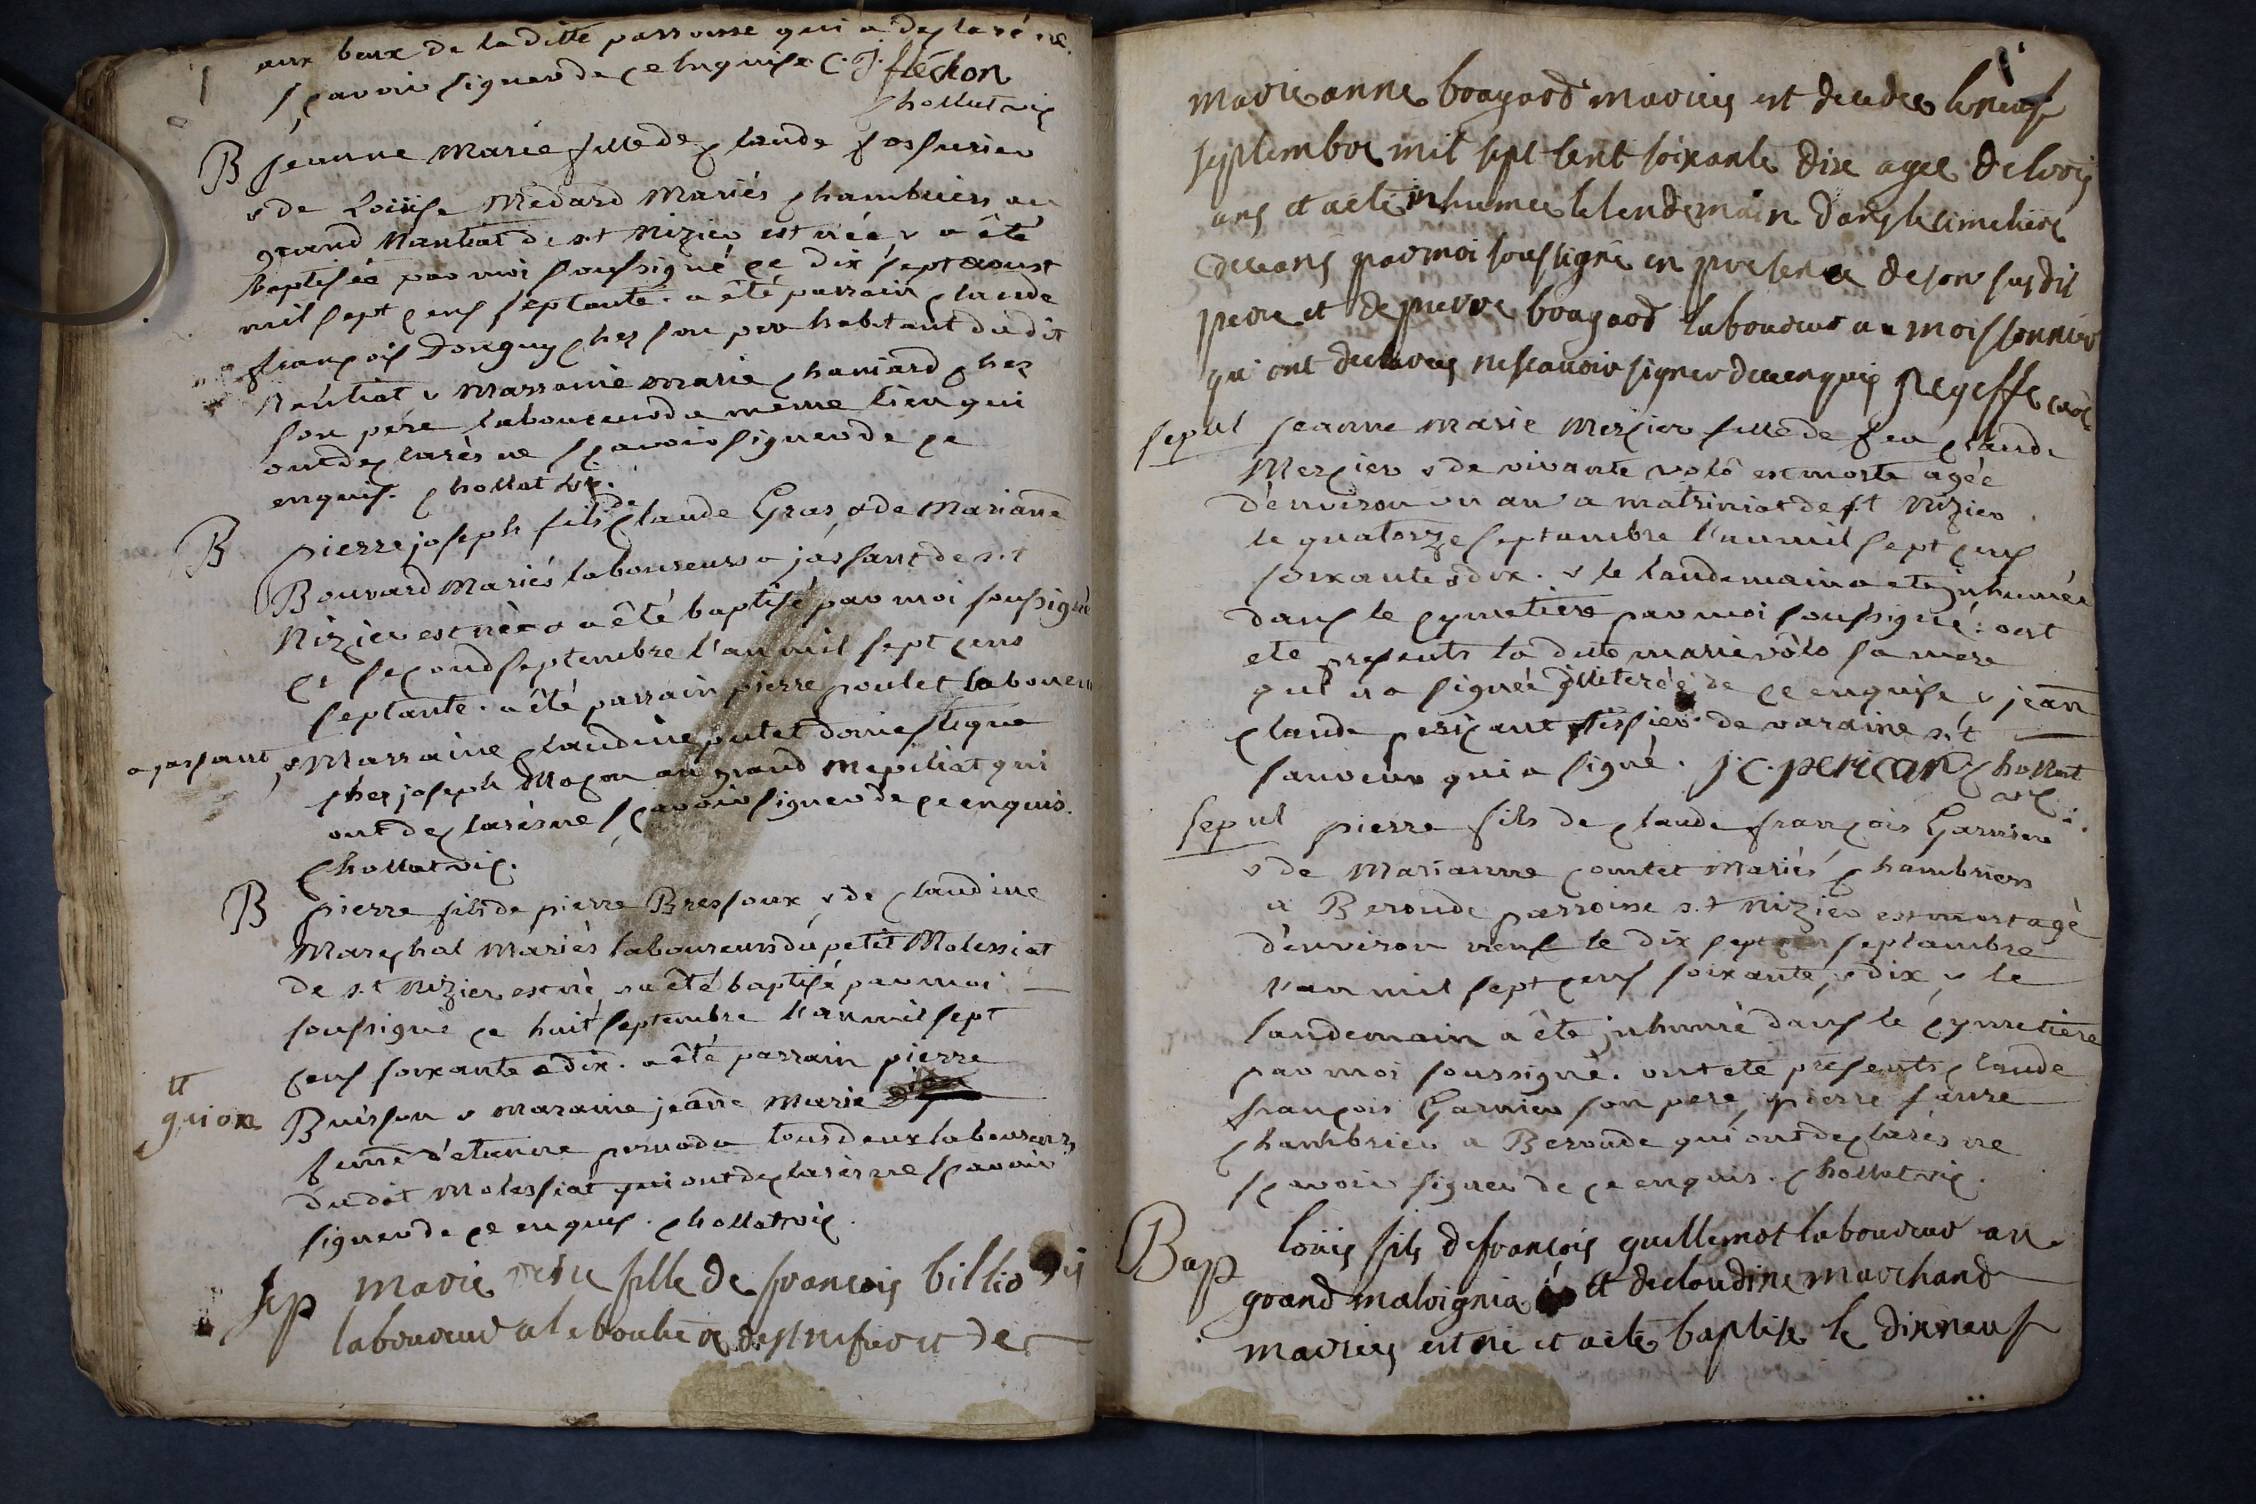 aux baux de la ditte parroisse qui a declaré ne
sçavoir signer de ce enquise C. J. fléchon
chollat vic
B jeanne Marie fille de claude fossurier
& de Loüise Medard Mariés chambriers au
grand Nantiat de s.t Nizier est née & a été
baptisée par moi soussigné ce dix sept aoust
mil sept cens septante. a été parrain claude
françois Donguy chez son pere habitant du dit
Nantiat & Marraine marie chaniard chez
son pére laboureur du meme lieu qui
ont declarés ne sçavoir signer de ce
enquis. chollat vic.
B pierre joseph fils de claude Gras & de Marianne
Bouvard Mariés laboureurs a jassant de s.t
Nizier est né & a été baptisé par moi soussigné
ce second septembre l'an mil sept cens
septante. a été parrain pierre poulet laboureur
a jassant & Marraine claudine putet domestique
chez joseph Maçon au grand Mepiliat qui
ont declarés ne sçavoir signer de ce enquis.
chollat vic.
B pierre fils de pierre Bressoux & de claudine
Marechal Mariés laboureurs du petit Molessiat
de s.t Nizier est né & a été baptisé par moi
soussigné ce huit septembre l'an mil sept
cens soixante & dix. a été parrain pierre
guion
Buisson & maraine jeanne Marie
femme d'etienne tous deux laboureurs
du dit Molessiat qui ont declarés ne sçavoir
signer de ce enquis. chollat vic.
Sep marie fille de francois
laboureur a et de
marie anne bragard mariés est decedee le neuf
septembre mil sept cent soixante dix agee de trois
ans et a eté inhumee le lendemain dans le cimetiere
de ceans par moi soussigné en presence de son susdit
pere et de pierre bragard laboureur au moissonnier
qui ont declarés ne scavoir signer de ce enquis
sepul jeanne marie Mercier fille de feu claude
Mercier & de vivante volô est morte agée
d'environ un an a matriniat de s.t Nizier
le quatorze septambre l'an mil sept cens
soixante & dix. & le landemain a eté inhumée
dans le cymetiere par moi soussigné. ont
eté presents la dite marie vôlo sa mere
qui n'a signée jlliterée de ce enquise & jean
claude perican tissier de varaine s.t
sauveur qui a signé. j.c. perican chollat
vic.
sepul pierre fils de claude françois Garnier
& de Marianne comtet Mariés chambriers
a Beroude parroisse s.t Nizier est mort agé
d'environ neuf le dix sept septambre
l'an mil sept cens soixante & dix & le
landemain a été jnhumé dans le cymetiere
par moi soussigné. ont eté présents claude
françois Garnier son pere, pierre faure
chambrier a Beroude qui ont declarés ne
sçavoir signer de ce enquis. chollat vic.
Bap loüis fils de francois guillemot laboureur au
grand malvignia et de claudine marchand
mariés est né et a eté baptisé le dix neuf